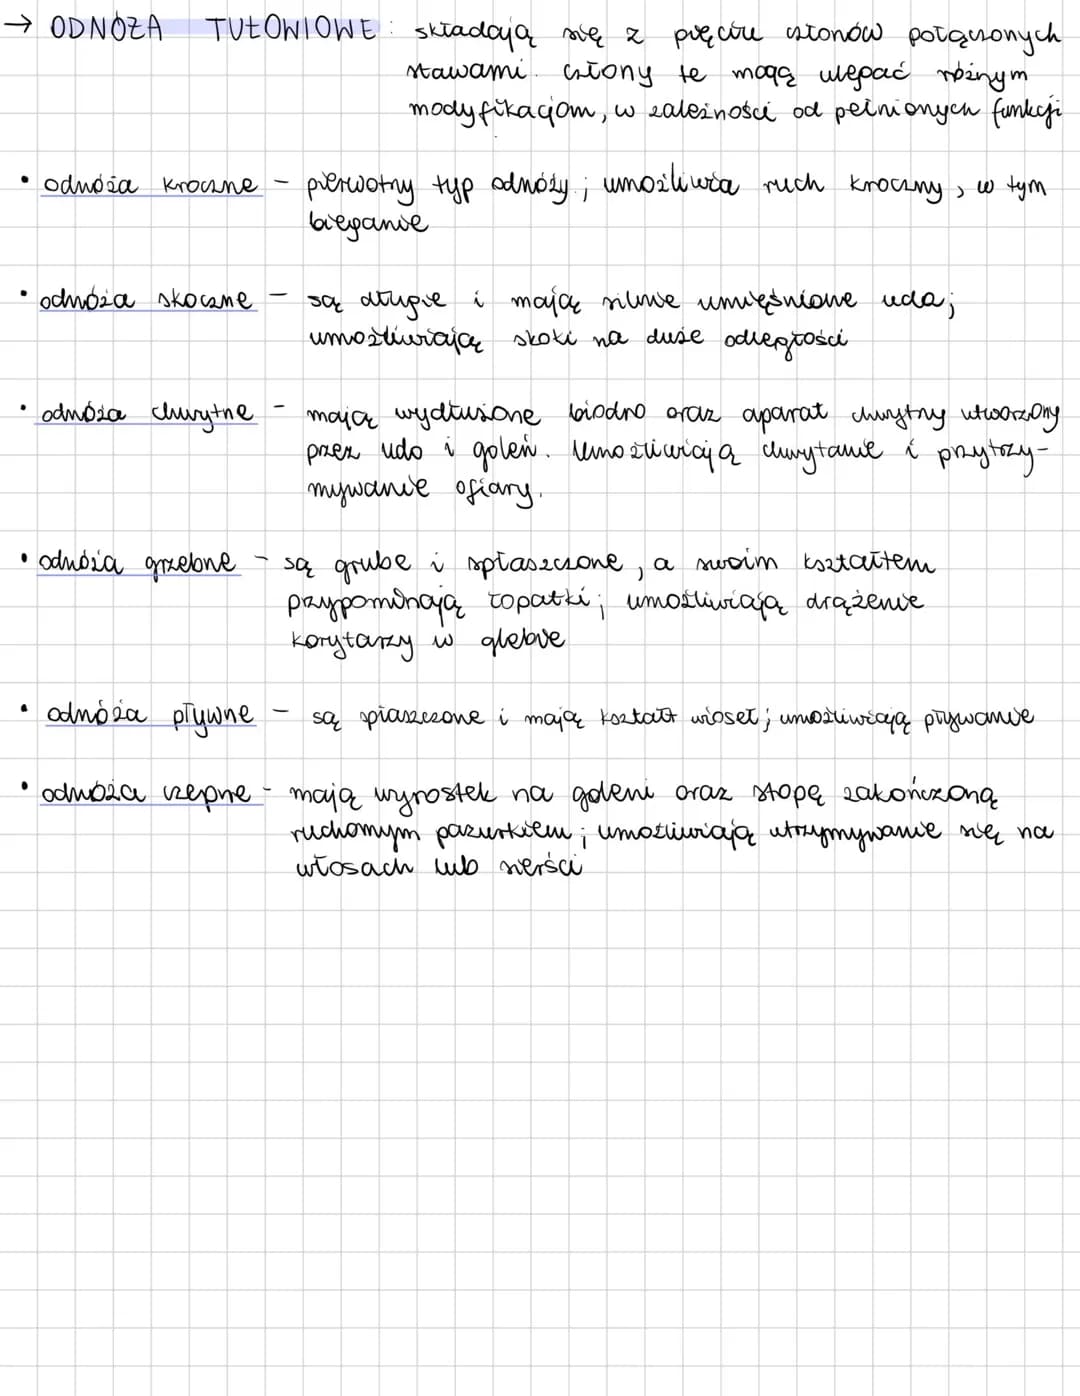 → ODNÓŻA TUŁOWIOWE: składają się z pięciu członów połączonych
stawami. człony te mogą ulegać różnym
modyfikacjom, w zależności od pełnionych funkcji
• odnóża kroczne - pierwotny typ odnóży; umożliwia ruch kroczny, w tym
bieganie
• odnóża skoczne - są długie i mają silnie umięśnione uda;
umożliwiają skoki na duże odległości
• odnóża chwytne - mają wydłużone biodro oraz aparat chwytny utworzony
przez udo i goleń. Umożliwiają chwytanie i przytrzy-
mywanie ofiary.
• odnóża grzebne - są grube i spłaszczone, a swoim kształtem
przypominają łopatki; umożliwiają drążenie
korytarzy w glebie
• odnóża pływne - są spłaszczone i mają kształt wioseł; umożliwiają pływanie
• odnóża czepne - mają wyrostek na goleni oraz stopę zakończoną
ruchomym pazurkiem; umożliwiają utrzymywanie się na
włosach lub sierści